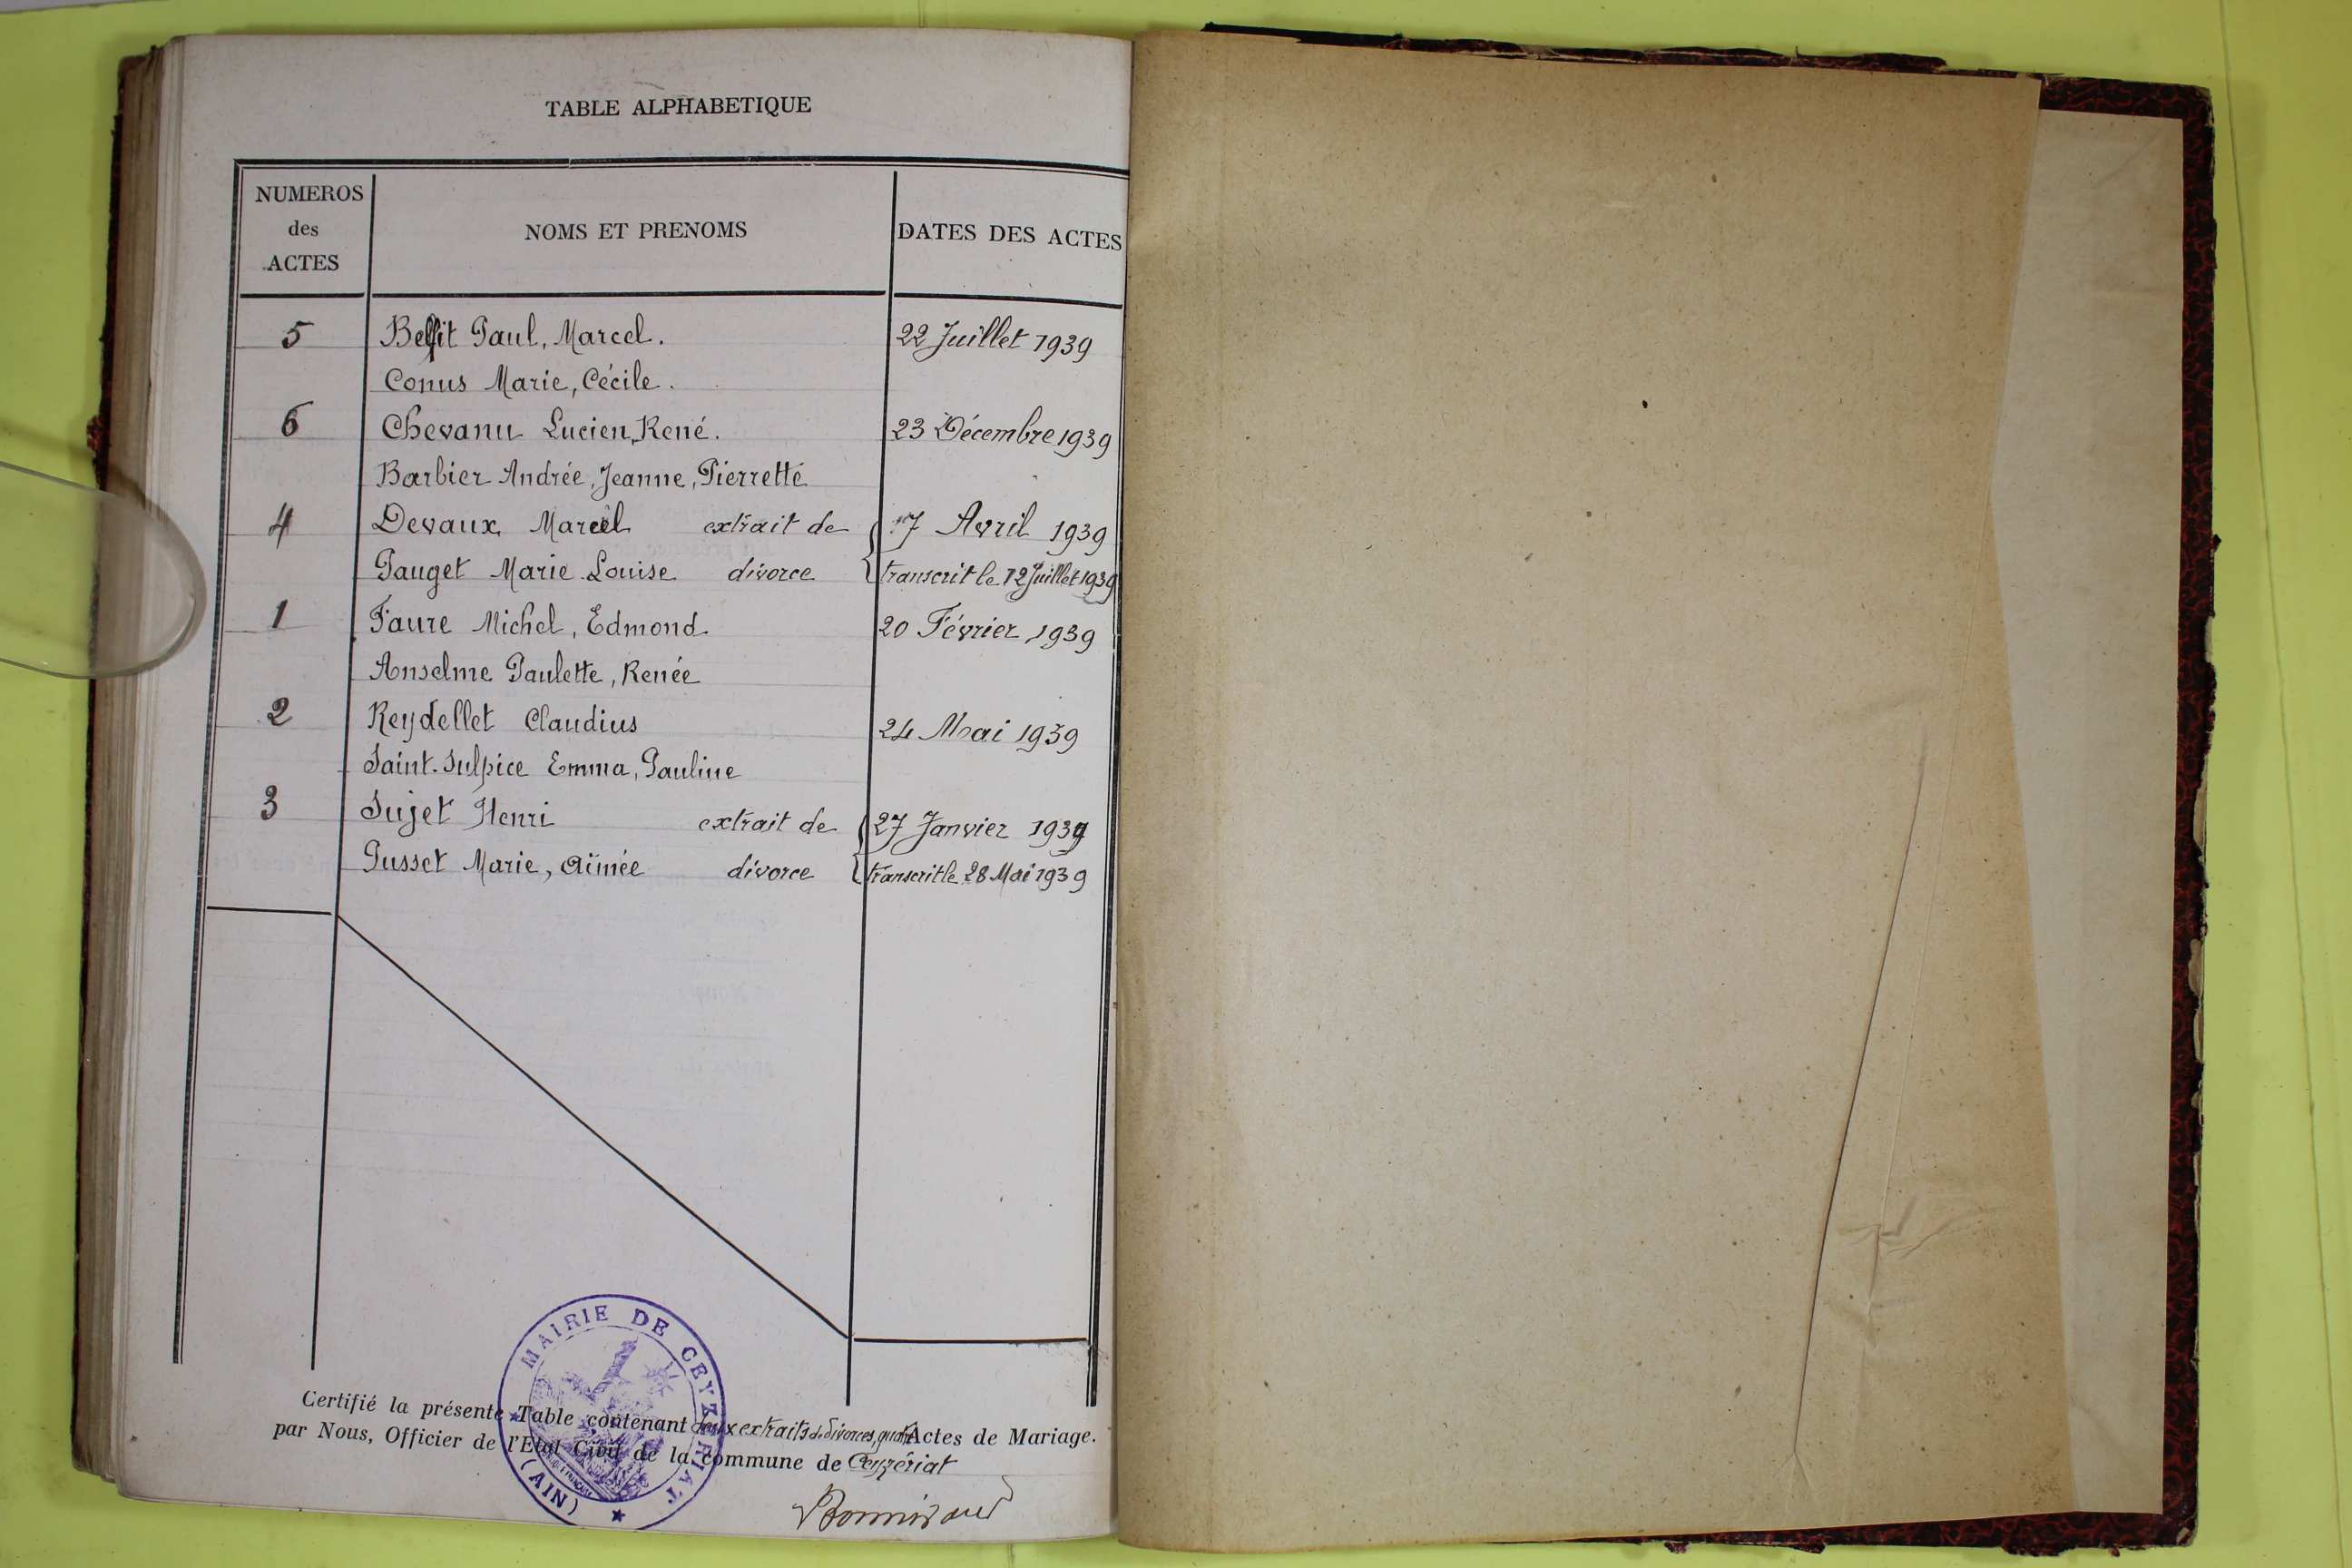 TABLE ALPHABETIQUE
NUMEROS des ACTES NOMS ET PRENOMS DATES DES ACTES
5 Paul, Marcel. 22 Juillet 1939
Conus Marie, Cécile.
6 Chevanu Lucien, René. 23 Décembre 1939
Barbier Andrée, Jeanne, Pierrette
4 Devaux Marcel extrait de 7 Avril 1939
Pauget Marie Louise divorce transcrit le 12 Juillet 1939
1 Faure Michel, Edmond 20 Février 1939
Anselme Paulette, Renée
2 Reydellet Claudius 24 Mai 1939
Saint-Sulpice Emma, Pauline
3 Sujet Henri extrait de 27 Janvier 1939
Pusset Marie, Aimée divorce transcrit le 28 Mai 1939
MAIRIE DE CEYZERIAT (AIN)
Certifié la présente Table contenant deux extraits de divorces, quatre Actes de Mariage.
par Nous, Officier de l'Etat Civil de la commune de Ceyzériat